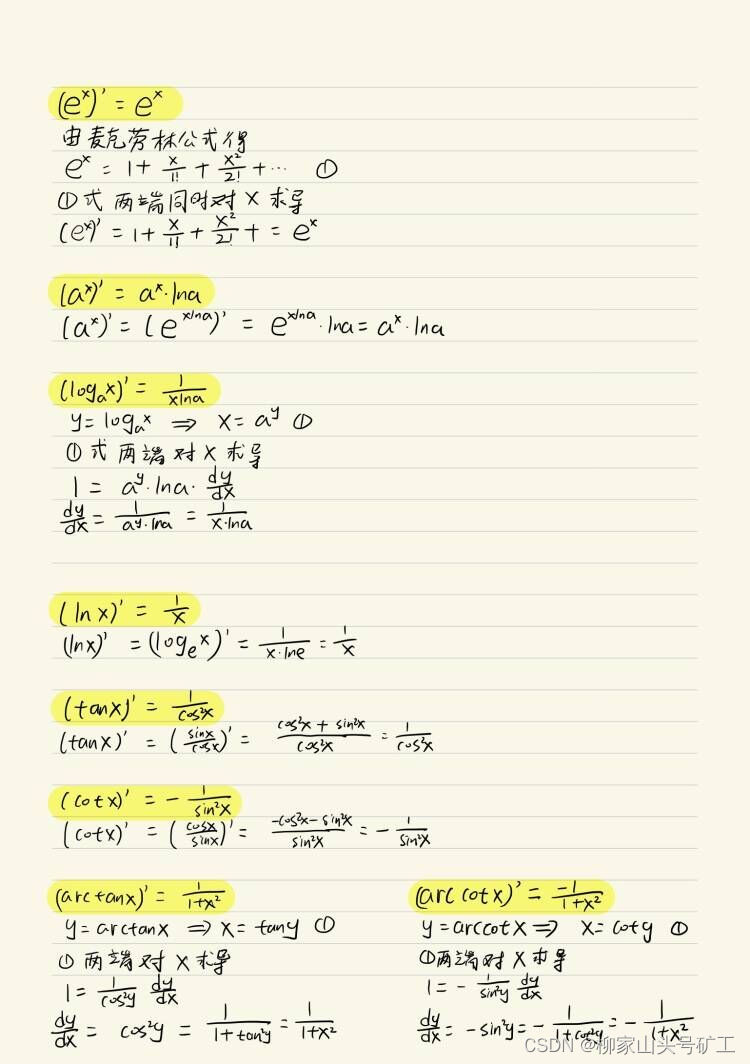 (e^x)' = e^x
由麦克劳林公式得
e^x = 1 + x/1! + x²/2! + ··· ①
①式 两端同时对 X 求导
(e^x)' = 1 + x/1! + x²/2! + = e^x
(a^x)' = a^x·lna
(a^x)' = (e^{xlna})' = e^{xlna}·lna = a^x·lna
(log_a x)' = 1/(xlna)
y = log_a x ⇒ x = a^y ①
①式 两端对 X 求导
1 = a^y·lna·dy/dx
dy/dx = 1/(a^y·lna) = 1/(x·lna)
(lnx)' = 1/x
(lnx)' = (log_e x)' = 1/(x·lne) = 1/x
(tanx)' = 1/cos²x
(tanx)' = (sinx/cosx)' = (cos²x + sin²x)/cos²x = 1/cos²x
(cotx)' = - 1/sin²x
(cotx)' = (cosx/sinx)' = (-cos²x - sin²x)/sin²x = - 1/sin²x
(arctanx)' = 1/(1+x²)
y = arctanx ⇒ x = tany ①
①两端对 X 求导
1 = 1/cos²y dy/dx
dy/dx = cos²y = 1/(1+tan²y) = 1/(1+x²)
(arccotx)' = -1/(1+x²)
y = arccotx ⇒ x = coty ①
①两端对 X 求导
1 = - 1/sin²y dy/dx
dy/dx = -sin²y = - 1/(1+cot²y) = - 1/(1+x²)
CSDN @柳家山头号矿工